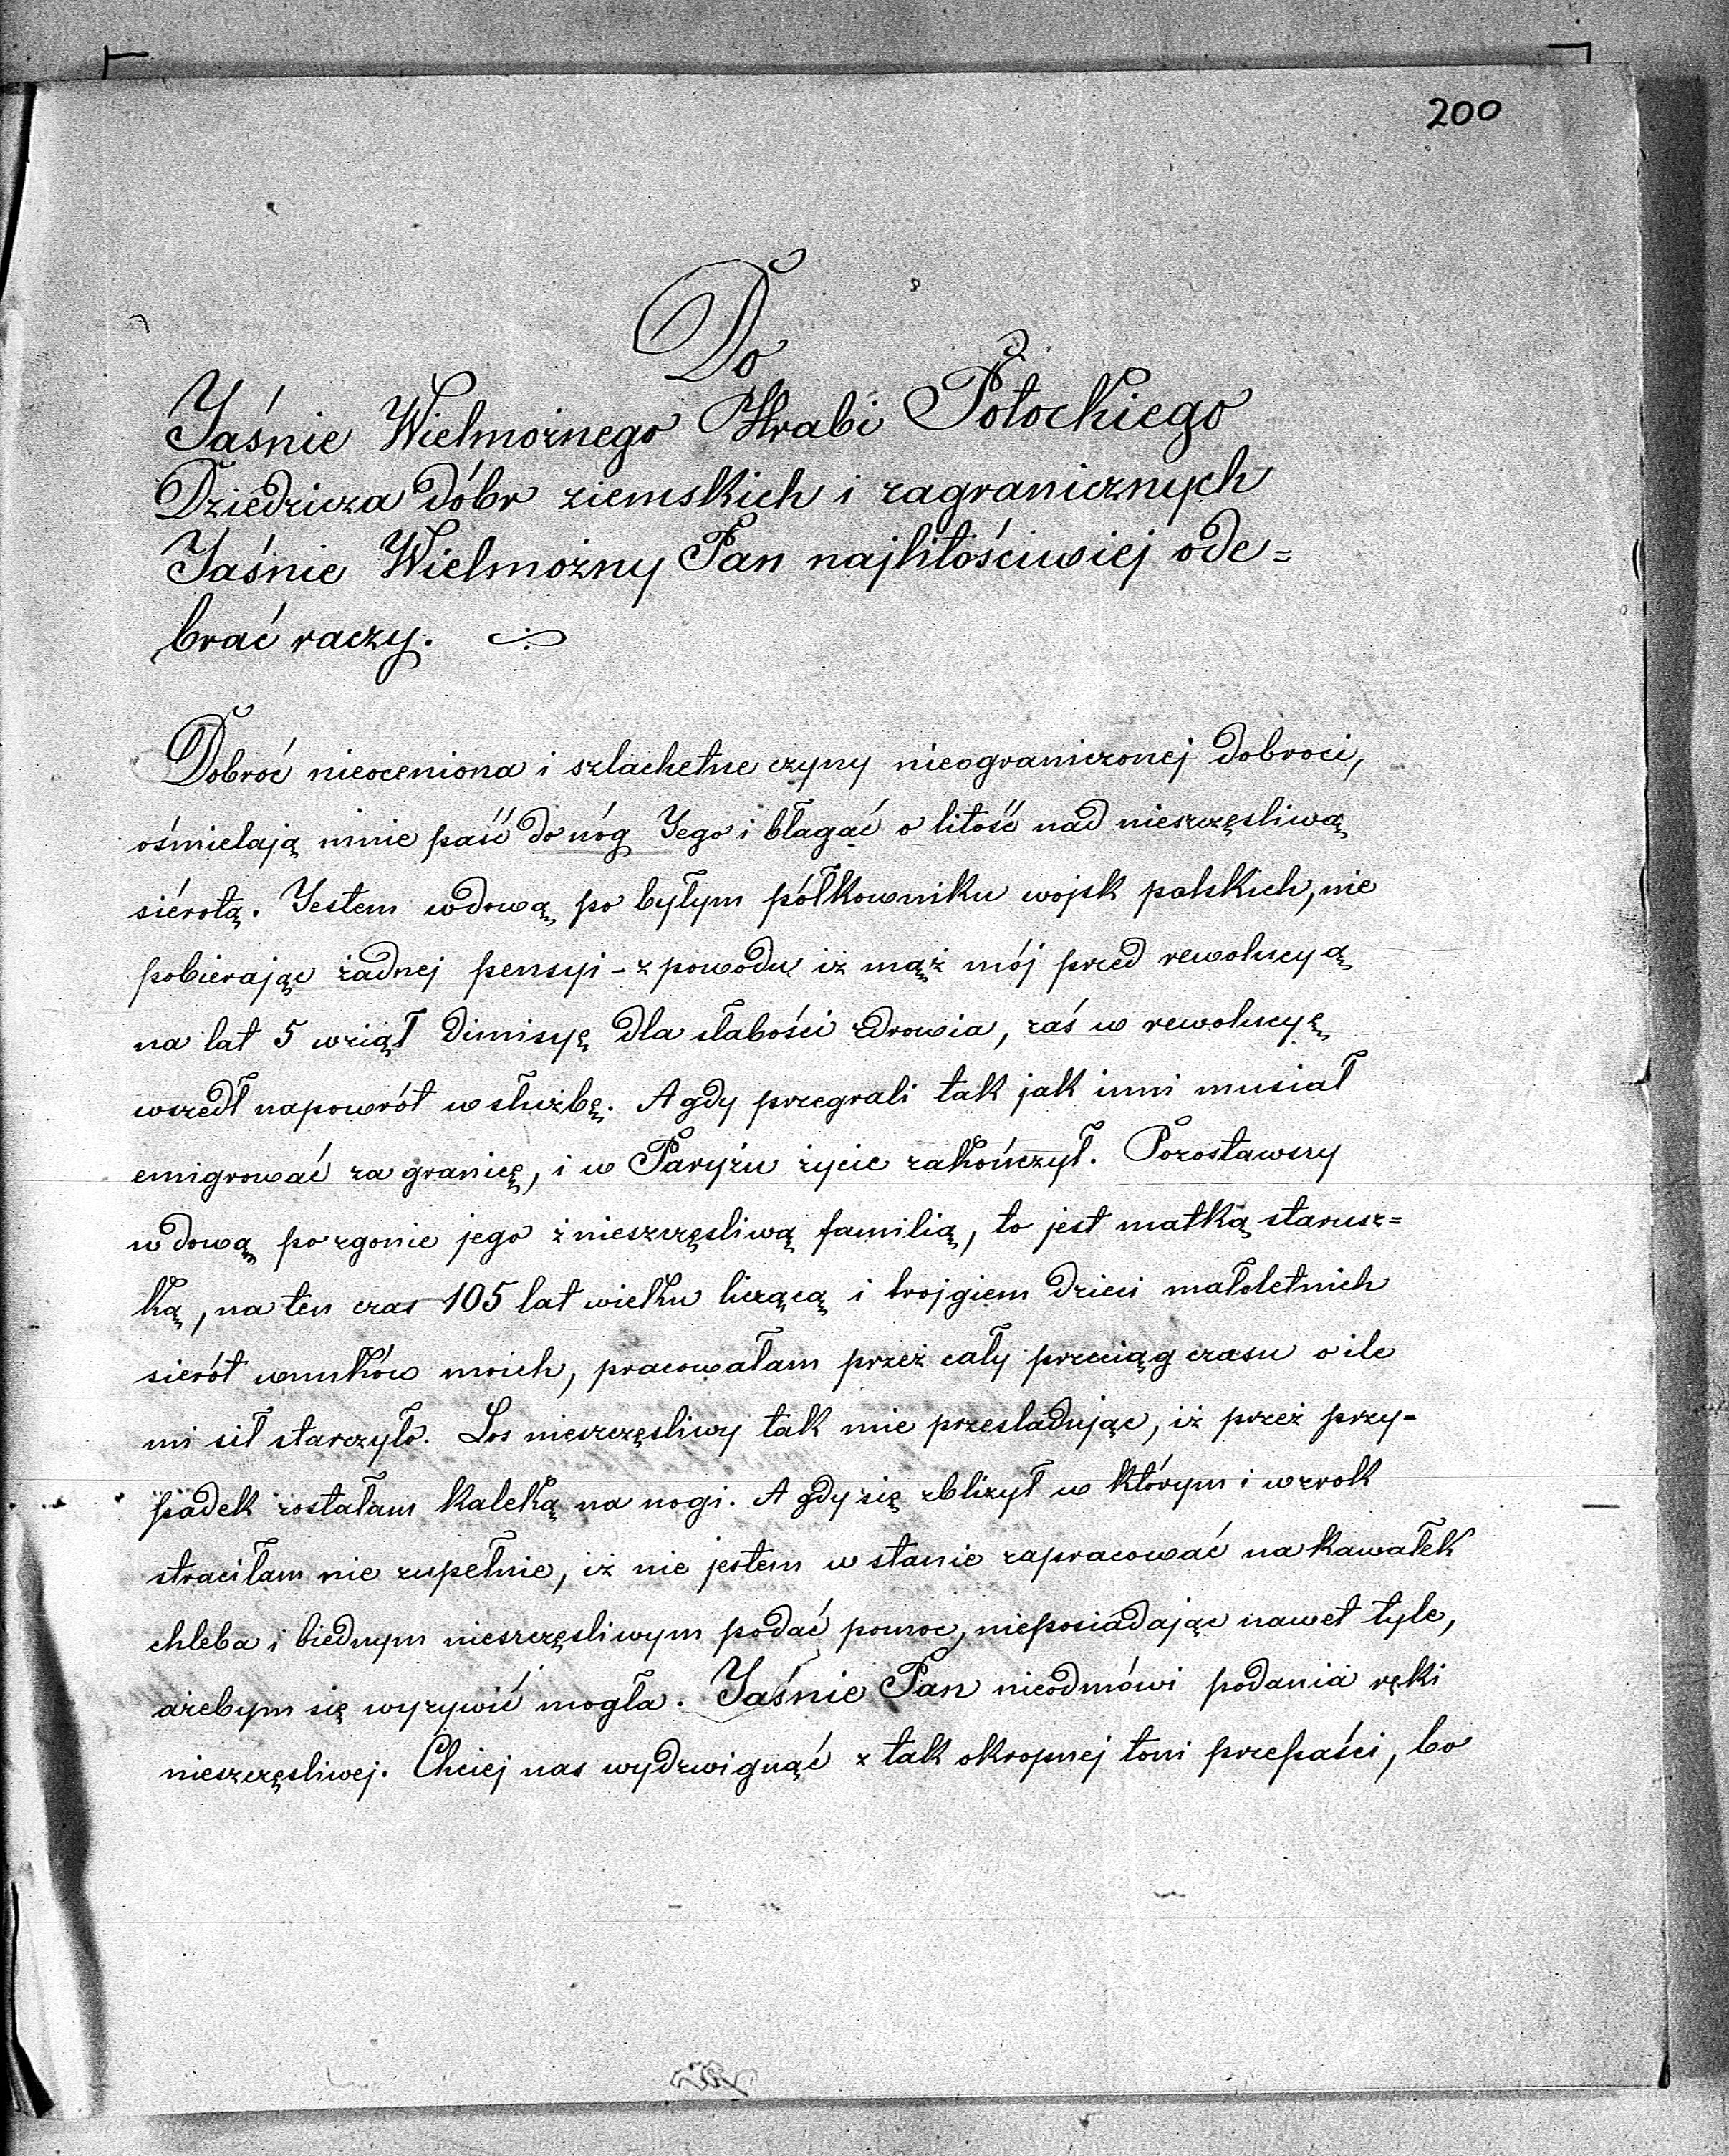 200
Do
Jaśnie Wielmożnego Hrabi Potockiego
Dziedzica dóbr ziemskich i zagranicznych
Jaśnie Wielmożny Pan najlitościwiej ode=
brać raczy.
Dobroć nieoceniona i szlachetne czyny nieograniczonej dobroci,
ośmielają mnie paść do nóg Jego i błagać o litość nad nieszczęsliwą
siérotą. Jestem wdową po byłym półkowniku wojsk polskich, nie
pobierając żadnej pensyi - z powodu iż mąż mój przed rewolucyą
na lat 5 wziął dimisyę dla słabości zdrowia, zaś w rewolucyę
wszedł napowrót w służbę. A gdy przegrali tak jak inni musiał
emigrować za granicę, i w Paryżu życie zakończył. Pozostawszy
wdową po zgonie jego z nieszczęsliwą familią, to jest matką starusz=
ką, na ten czas 105 lat wieku liczącą i trojgiem dzieci małoletnich
sierót wnuków moich, pracowałam przez cały przeciąg czasu o ile
mi sił starczyło. Los nieszczęsliwy tak mie przesladując, iż przez przy-
padek zostałam kaleką na nogi. A gdy się zbliżył w którym i wzrok
straciłam nie zupełnie, iż nie jestem w stanie zapracować na kawałek
chleba i biednym nieszczęsliwym podać pomoc, nieposiadając nawet tyle,
ażebym się wyżywić mogła. Jaśnie Pan nieodmówi podania ręki
nieszczęsliwej. Chciej nas wydzwignąć z tak okropnej toni przepaści, bo